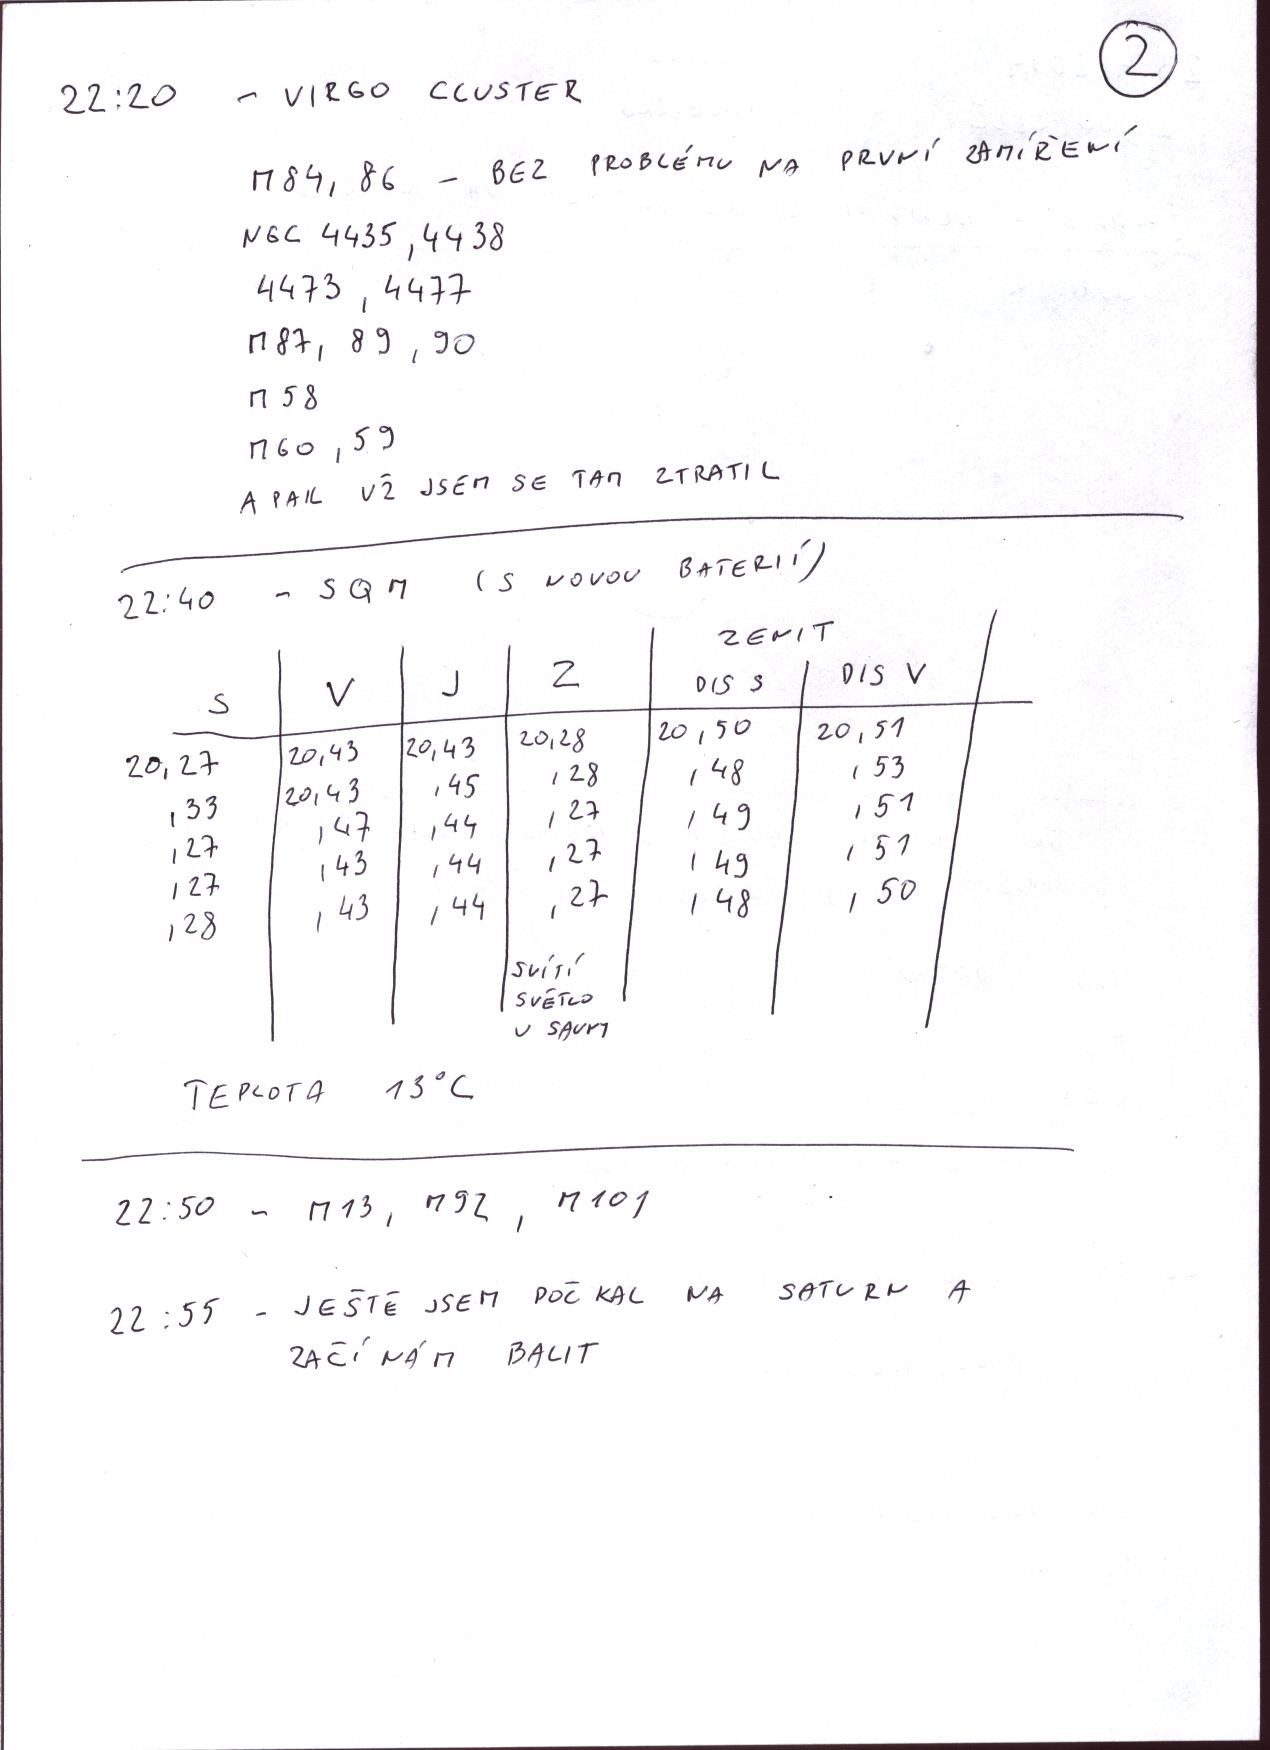 2
22:20 - VIRGO CLUSTER
M84, 86 - BEZ PROBLÉMU NA PRVNÍ ZAMÍŘENÍ
NGC 4435, 4438
4473, 4477
M87, 89, 90
M58
M60, 59
A PAK UŽ JSEM SE TAM ZTRATIL
22:40 - SQM (S NOVOU BATERIÍ)
ZENIT
S V J Z DIS S DIS V
20,27 20,43 20,43 20,28 20,50 20,51
,33 20,43 ,45 ,28 ,48 ,53
,27 ,47 ,44 ,27 ,49 ,51
,27 ,43 ,44 ,27 ,49 ,51
,28 ,43 ,44 ,27 ,48 ,50
SVÍTÍ
SVĚTLO
V SAUNĚ
TEPLOTA 13°C
22:50 - M13, M92, M101
22:55 - JEŠTĚ JSEM POČKAL NA SATURN A
ZAČÍNÁM BALIT